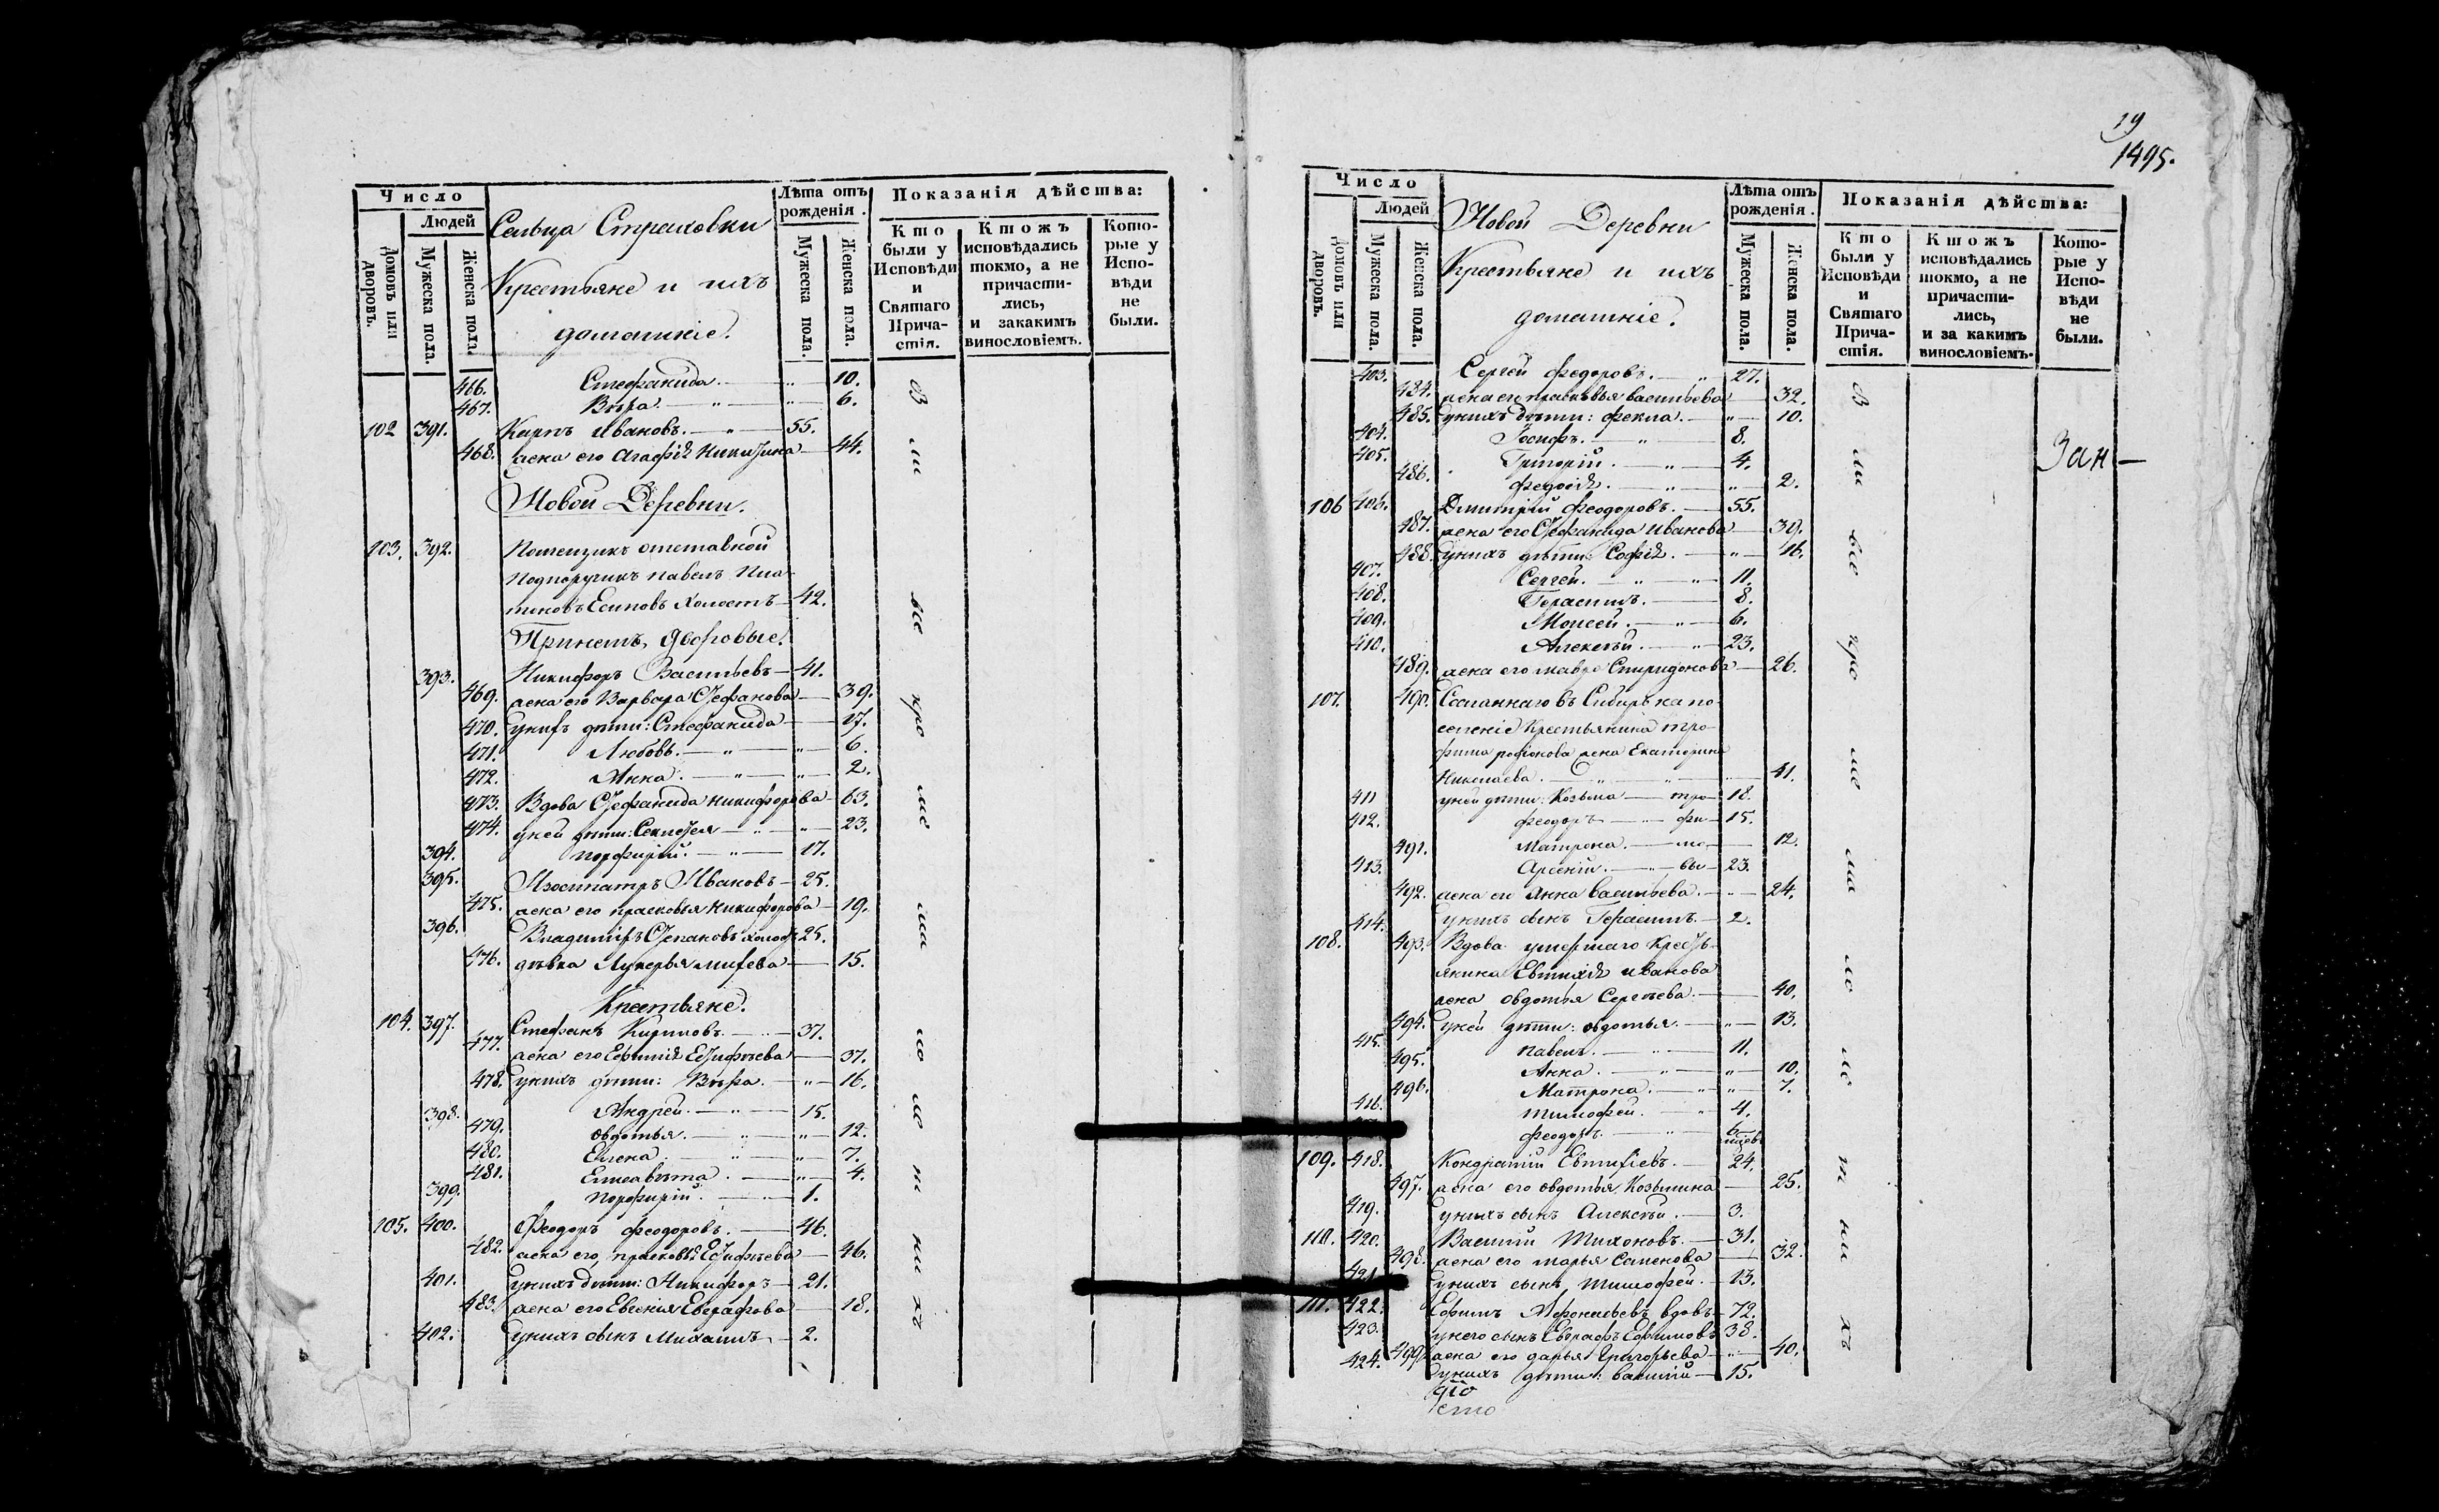 Число
Людей
Домовъ или дворовъ.
Мужеска пола.
Женска пола.
Сельца Страховки
Крестьяне и ихъ
домашніе.
Лѣта отъ рожденія.
Мужеска пола.
Женска пола.
Показанія дѣйства:
Кто были у Исповѣди и Святаго Причастія.
Ктожъ исповѣдались токмо, а не причастились, и закакимъ винословіемъ.
Которые у Исповѣди не были.
466. Стефанида. 10.
467. Вѣра. 6.
102 391. Карпъ Ивановъ. 55.
468. жена его Агафія Никитина 44.
Новой Деревни.
103. 392. Помещикъ отставной
Подпоручикъ Павелъ Пла-
тоновъ Есиповъ холостъ 42.
При немъ дворовые.
393. Никифоръ Васильевъ 41.
469. жена его Варвара Стефанова 39.
470. унихъ дѣти: Стефанида 17.
471. Любовь. 6.
472. Анна. 2.
473. Вдова Стефанида Никифорова 63.
474. уней дѣти: 23.
394. Порфирій. 17.
395. Ивановъ 25.
475. жена его Прасковья Никифорова 19.
396. Владимиръ Степановъ холостъ 25.
476. дѣвка Лукерья 15.
Крестьяне.
104. 397. Стефанъ Кириловъ. 37.
477. жена его Ефимія 37.
478. унихъ дѣти: Вѣра. 16.
398. Андрей. 15.
479. Овдотья. 12.
480. Елена. 7.
481. Елисавѣта. 4.
399. Порфирій. 1.
105. 400. Феодоръ Феодоровъ. 46.
482. жена его, Прасковья 46.
401. унихъ дѣти: Никифоръ 21.
483. жена его Евгенія Евграфова 18.
402. унихъ сынъ Михаилъ 2.
19
1495.
Число
Людей
Домовъ или дворовъ.
Мужеска пола.
Женска пола.
Новой Деревни
Крестьяне и ихъ
домашніе.
Лѣта отъ рожденія.
Мужеска пола.
Женска пола.
Показанія дѣйства:
Кто были у Исповѣди и Святаго Причастія.
Ктожъ исповѣдались токмо, а не причастились, и за какимъ винословіемъ.
Которые у Исповѣди не были.
403. Сергей Федоровъ. 27.
484. жена его Прасковья Васильева 32.
485. унихъ дѣти: Фекла. 10.
404. Іосифъ. 8.
405. Григорій. 4.
486. Федосія. 2.
106 406. Димитрій Феодоровъ. 55.
487. жена его Стефанида Иванова 39.
488. унихъ дѣти: Софія. 16.
407. Сергей. 11.
408. Герасимъ. 8.
409. Моисей. 6.
410. Алексѣй. 23.
489. жена его Мавра Спиридонова 26.
107. 490. Сосланнаго въ Сибирь на по-
селеніе Крестьянина Тро-
фима Родіонова жена Екатерина
Николаева. 41.
411 уней дѣти: Козьма тро- 18.
412. Феодоръ фи- 15.
491. Матрона. мо 12.
413. Арсеній. вы 23.
492. жена ег Анна Васильева. 24.
414. унихъ сынъ Герасимъ. 2.
108. 493. Вдова умершаго Кресть-
янина Евтихія Иванова
жена Овдотья Сергѣева. 40.
494. уней дѣти: Овдотья. 13.
415. Павелъ. 11.
495. Анна. 10.
496. Матрона. 7.
416. Тимофей. 4.
Феодоръ. 6
109. 418. Кондратій Евтихіевъ. 24.
497. жена его Овдотья Козьмина 25.
419. унихъ сынъ Алексѣй. 3.
110. 420. Василій Тихоновъ. 31.
498. жена его Марья Семенова 32.
421 унихъ сынъ Тимофей. 13.
111. 422. Ефимъ Афонасьевъ вдовъ 72.
423. унего сынъ Евграфъ Ефимовъ 38.
499. жена его Дарья Григорьева 40.
424. унихъ дѣти: Василій 15.